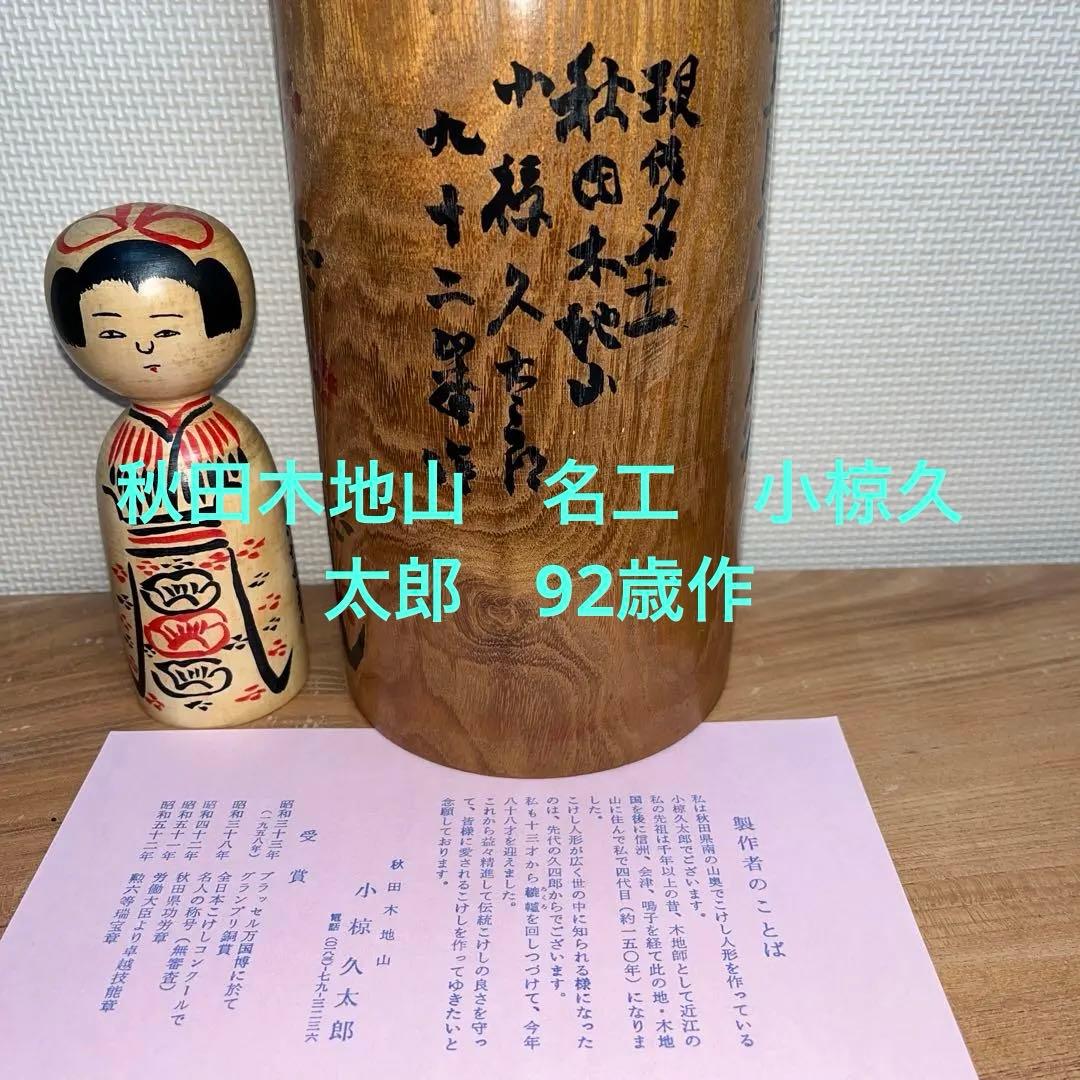 現代名工
秋田木地山
小椋久太郎
九十二歳作
秋田木地山　名工　小椋久
太郎　92歳作
製作者のことば
私は秋田県南の山奥でこけし人形を作っている
小椋久太郎でございます。
私の先祖は千年以上の昔、木地師として近江の
国を後に信洲、会津、鳴子を経て此の地・木地
山に住んで私で四代目（約一五〇年）になりま
した。
こけし人形が広く世の中に知られる様になった
のは、先代の久四郎からでございます。
私も十三才から轆轤を回しつづけて、今年
八十八才を迎えました。
これから益々精進して伝統こけしの良さを守っ
て、皆様に愛されるこけしを作ってゆきたいと
念願しております。
秋田木地山
小椋久太郎
受賞
昭和三十三年
（一九五八年）
ブラッセル万国博に於て
グランプリ銅賞
昭和三十八年
全日本こけしコンクールで
名人の称号（無審査）
昭和四十二年
秋田県功労章
昭和五十一年
労働大臣より卓越技能章
昭和五十二年
勲六等瑞宝章